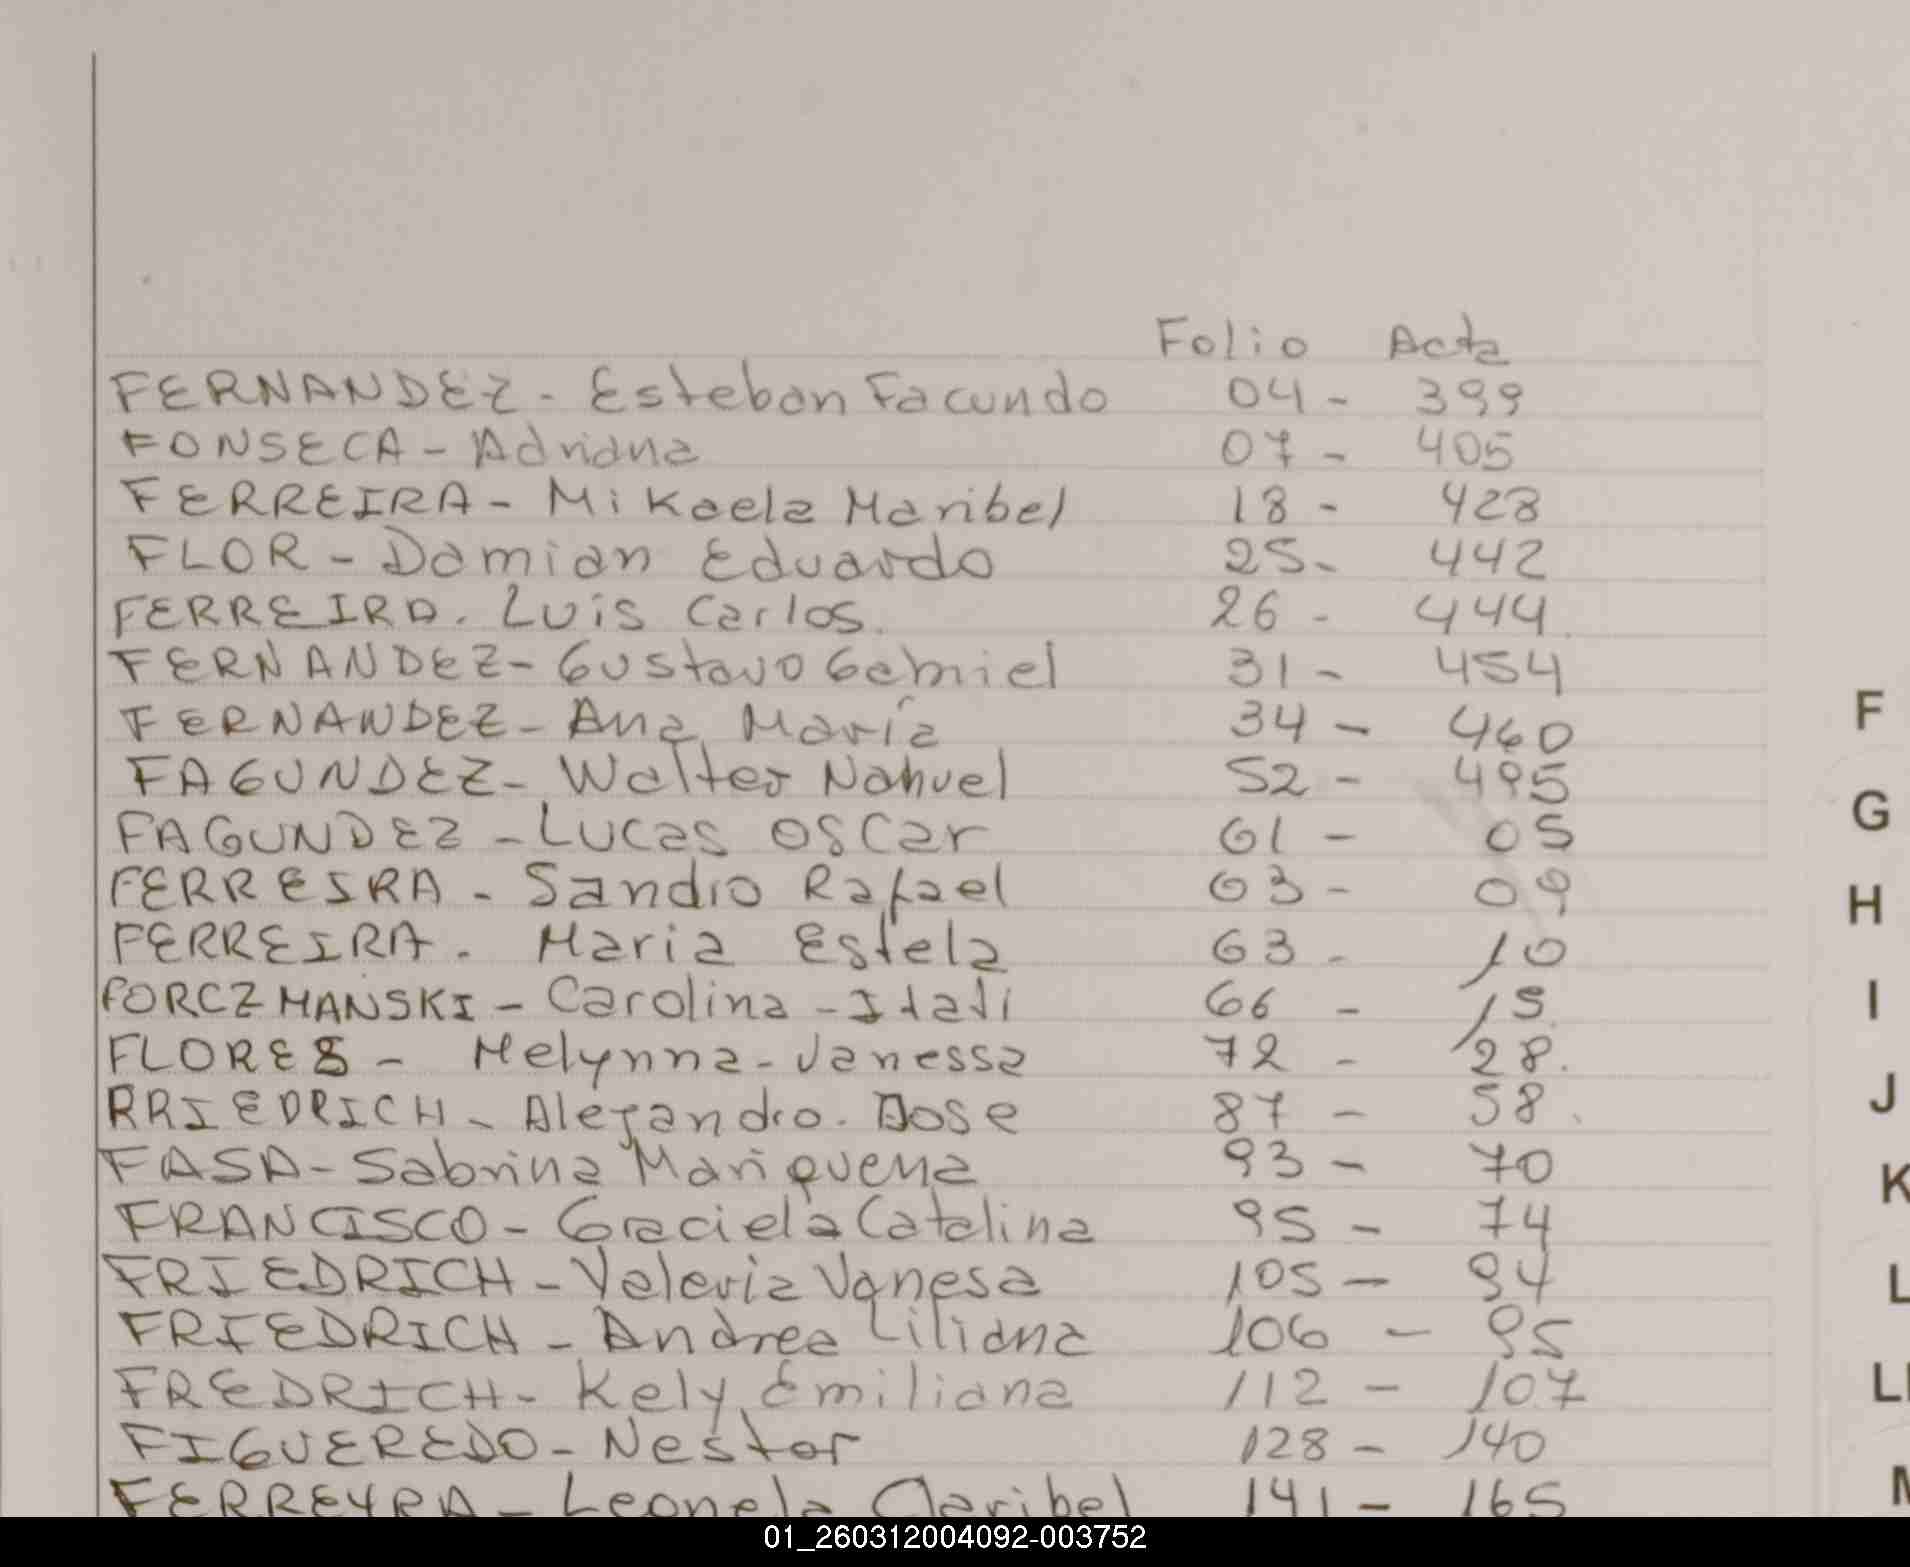 Folio Acta
FERNANDEZ - Esteban Facundo 04 - 399
FONSECA - Adriana 07 - 405
FERREIRA - Mikaela Maribel 18 - 428
FLOR - Damian Eduardo 25 - 442
FERREIRA. Luis Carlos. 26 - 444
FERNANDEZ - Gustavo Gabriel 31 - 454
FERNANDEZ - Ana María 34 - 460
FAGUNDEZ - Walter Nahuel 52 - 495
FAGUNDEZ - Lucas Oscar 61 - 05
FERREIRA - Sandro Rafael 63 - 09
FERREIRA. Maria Estela 63 - 10
FORCZMANSKI - Carolina - Itati 66 - 15
FLORES - Melynna - Vanessa 72 - 28.
RRIEDRICH - Alejandro. Jose 87 - 58.
FASA - Sabrina Mariquena 93 - 70
FRANCISCO - Graciela Catalina 95 - 74
FRIEDRICH - Valeria Vanesa 105 - 94
FRIEDRICH - Andrea Liliana 106 - 95
FREDRICH - Kely Emiliana 112 - 107
FIGUEREDO - Nestor 128 - 140
FERREYRA - Leonela Claribel 141 - 165
F
G
H
I
J
K
L
LL
M
01_260312004092-003752